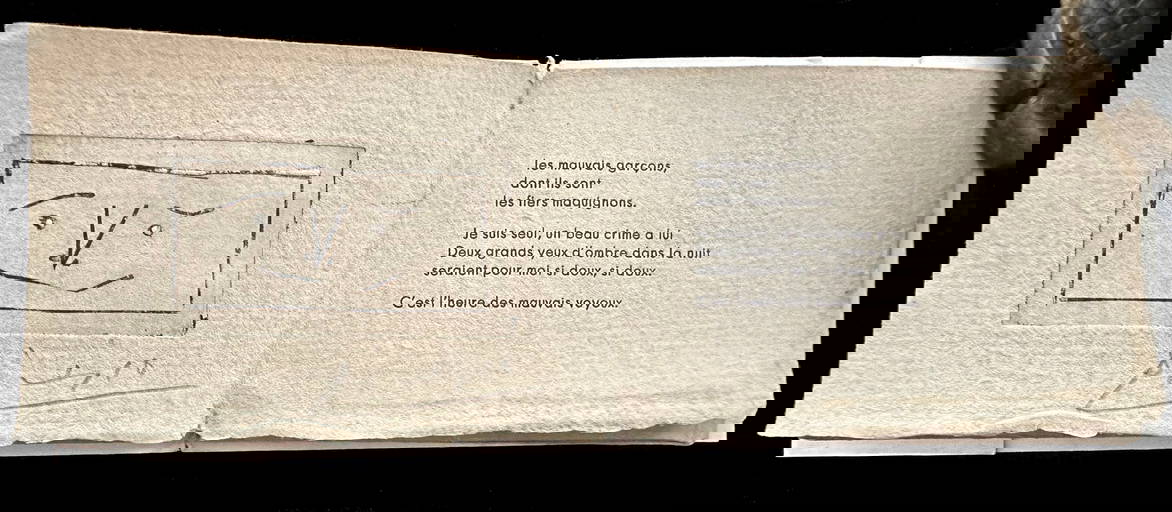 les mauvais garçons,
dont ils sont
les fiers maquignons.
Je suis seul, un beau crime a lui
Deux grands yeux d'ombre dans la nuit
seraient pour moi si doux, si doux
C'est l'heure des mauvais voyoux